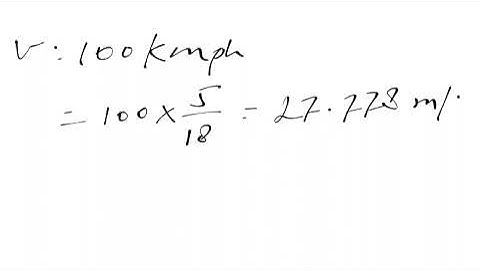 V : 100 kmph
= 100 × 5/18 = 27.778 m/.